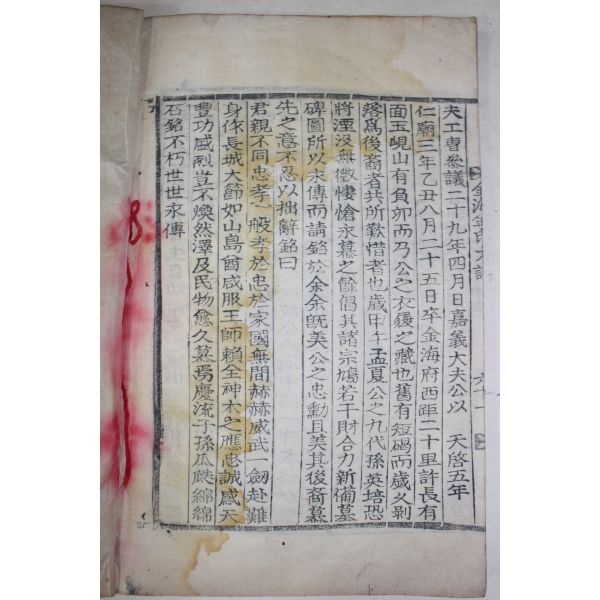 夫工曹參議二十九年四月日嘉義大夫公以　天啓五年
仁廟三年乙丑八月二十五日卒金海府西距二十里許長有
面玉峴山有負卯而乃公之衣履之藏也舊有短碣而歲久剝
落爲後裔者共所歎惜者也歲甲午孟夏公之九代孫英培恐
將湮沒無徵悽愴永慕之餘倡其諸宗鳩若干財合力新備墓
碑圖所以永傳而請銘於余余旣美公之忠勳且美其後裔慕
先之意不忍以拙辭銘曰
君親不同忠孝一般孝於忠於家國無間赫赫威武一劒赴難
身作長城大節如山島酋咸服王師賴全神木之應忠誠感天
豐功盛烈豈不煥然澤及民物愈久慕焉慶流子孫瓜瓞綿綿
石銘不朽世世永傳
金海金氏大譜